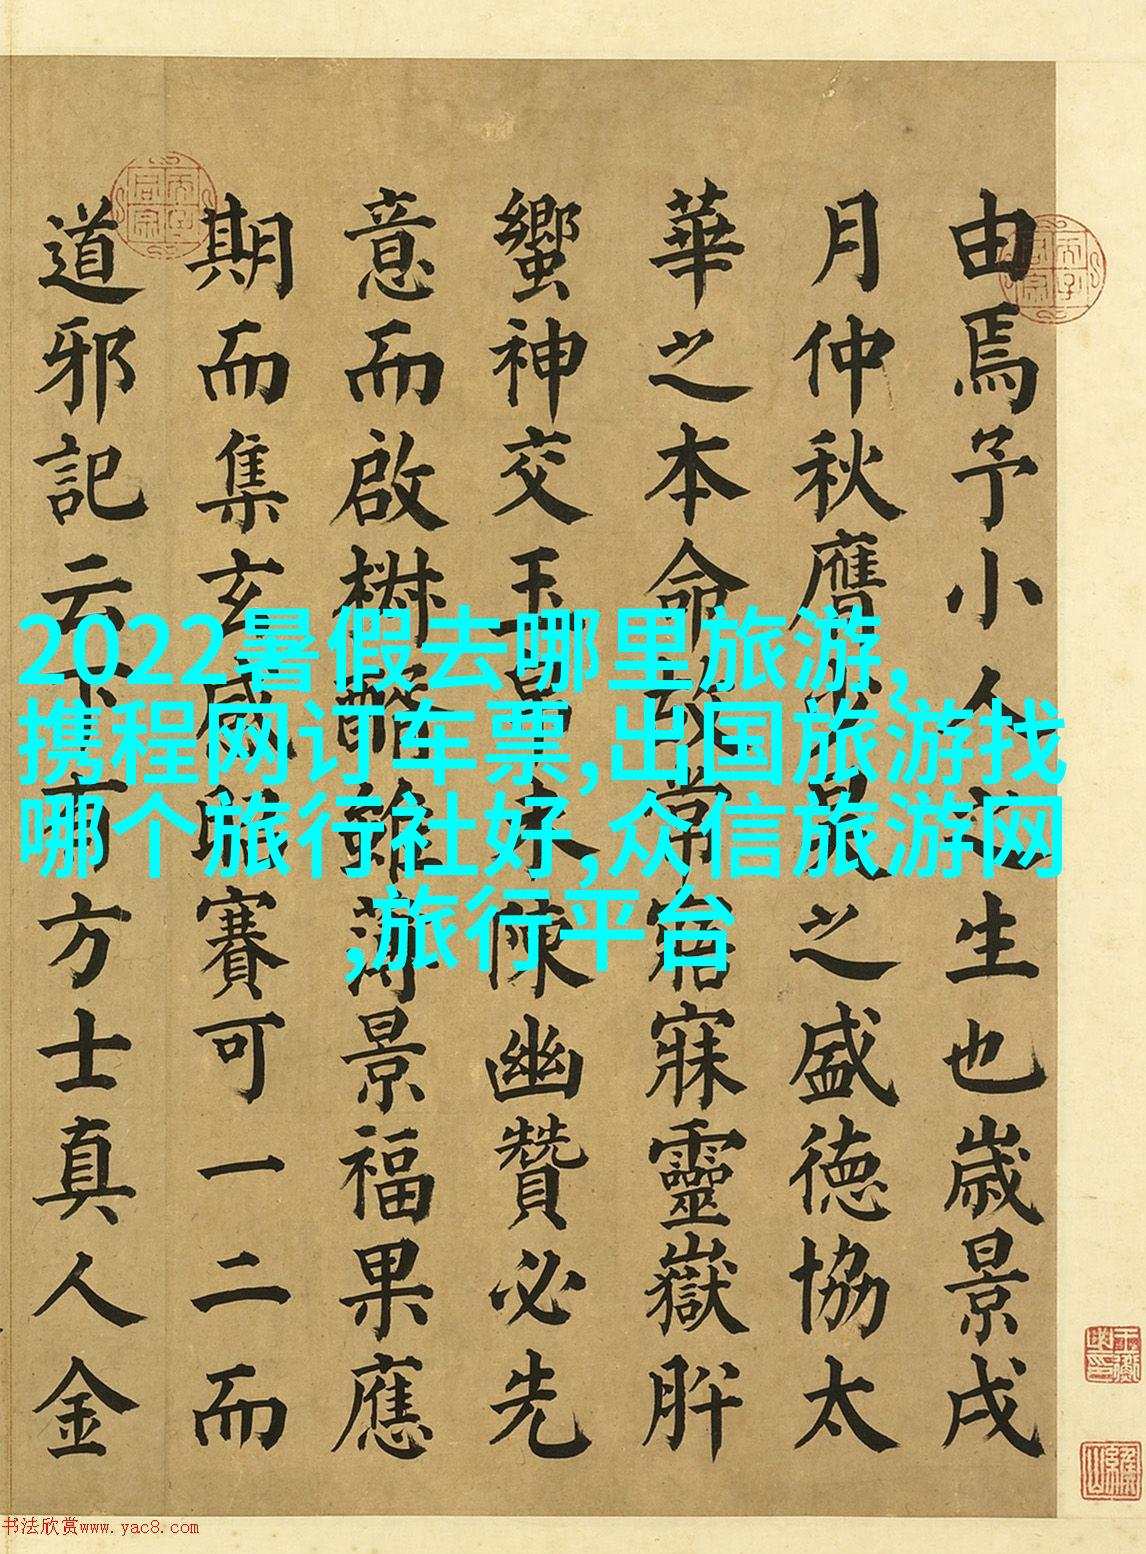 由焉予小人之生也歲景戌
月仲秋膺之盛德協太
華之本命故常寤寐靈嶽肸
蠁神交玉陳幽贊必先
意而啟樹薄景福果應
期而集玄感賽可一二而
道邪記云方士真人金
2022暑假去哪里旅游,
携程网订车票,出国旅游找
哪个旅行社好,众信旅游网
,旅行平台
书法欣赏www.yac8.com